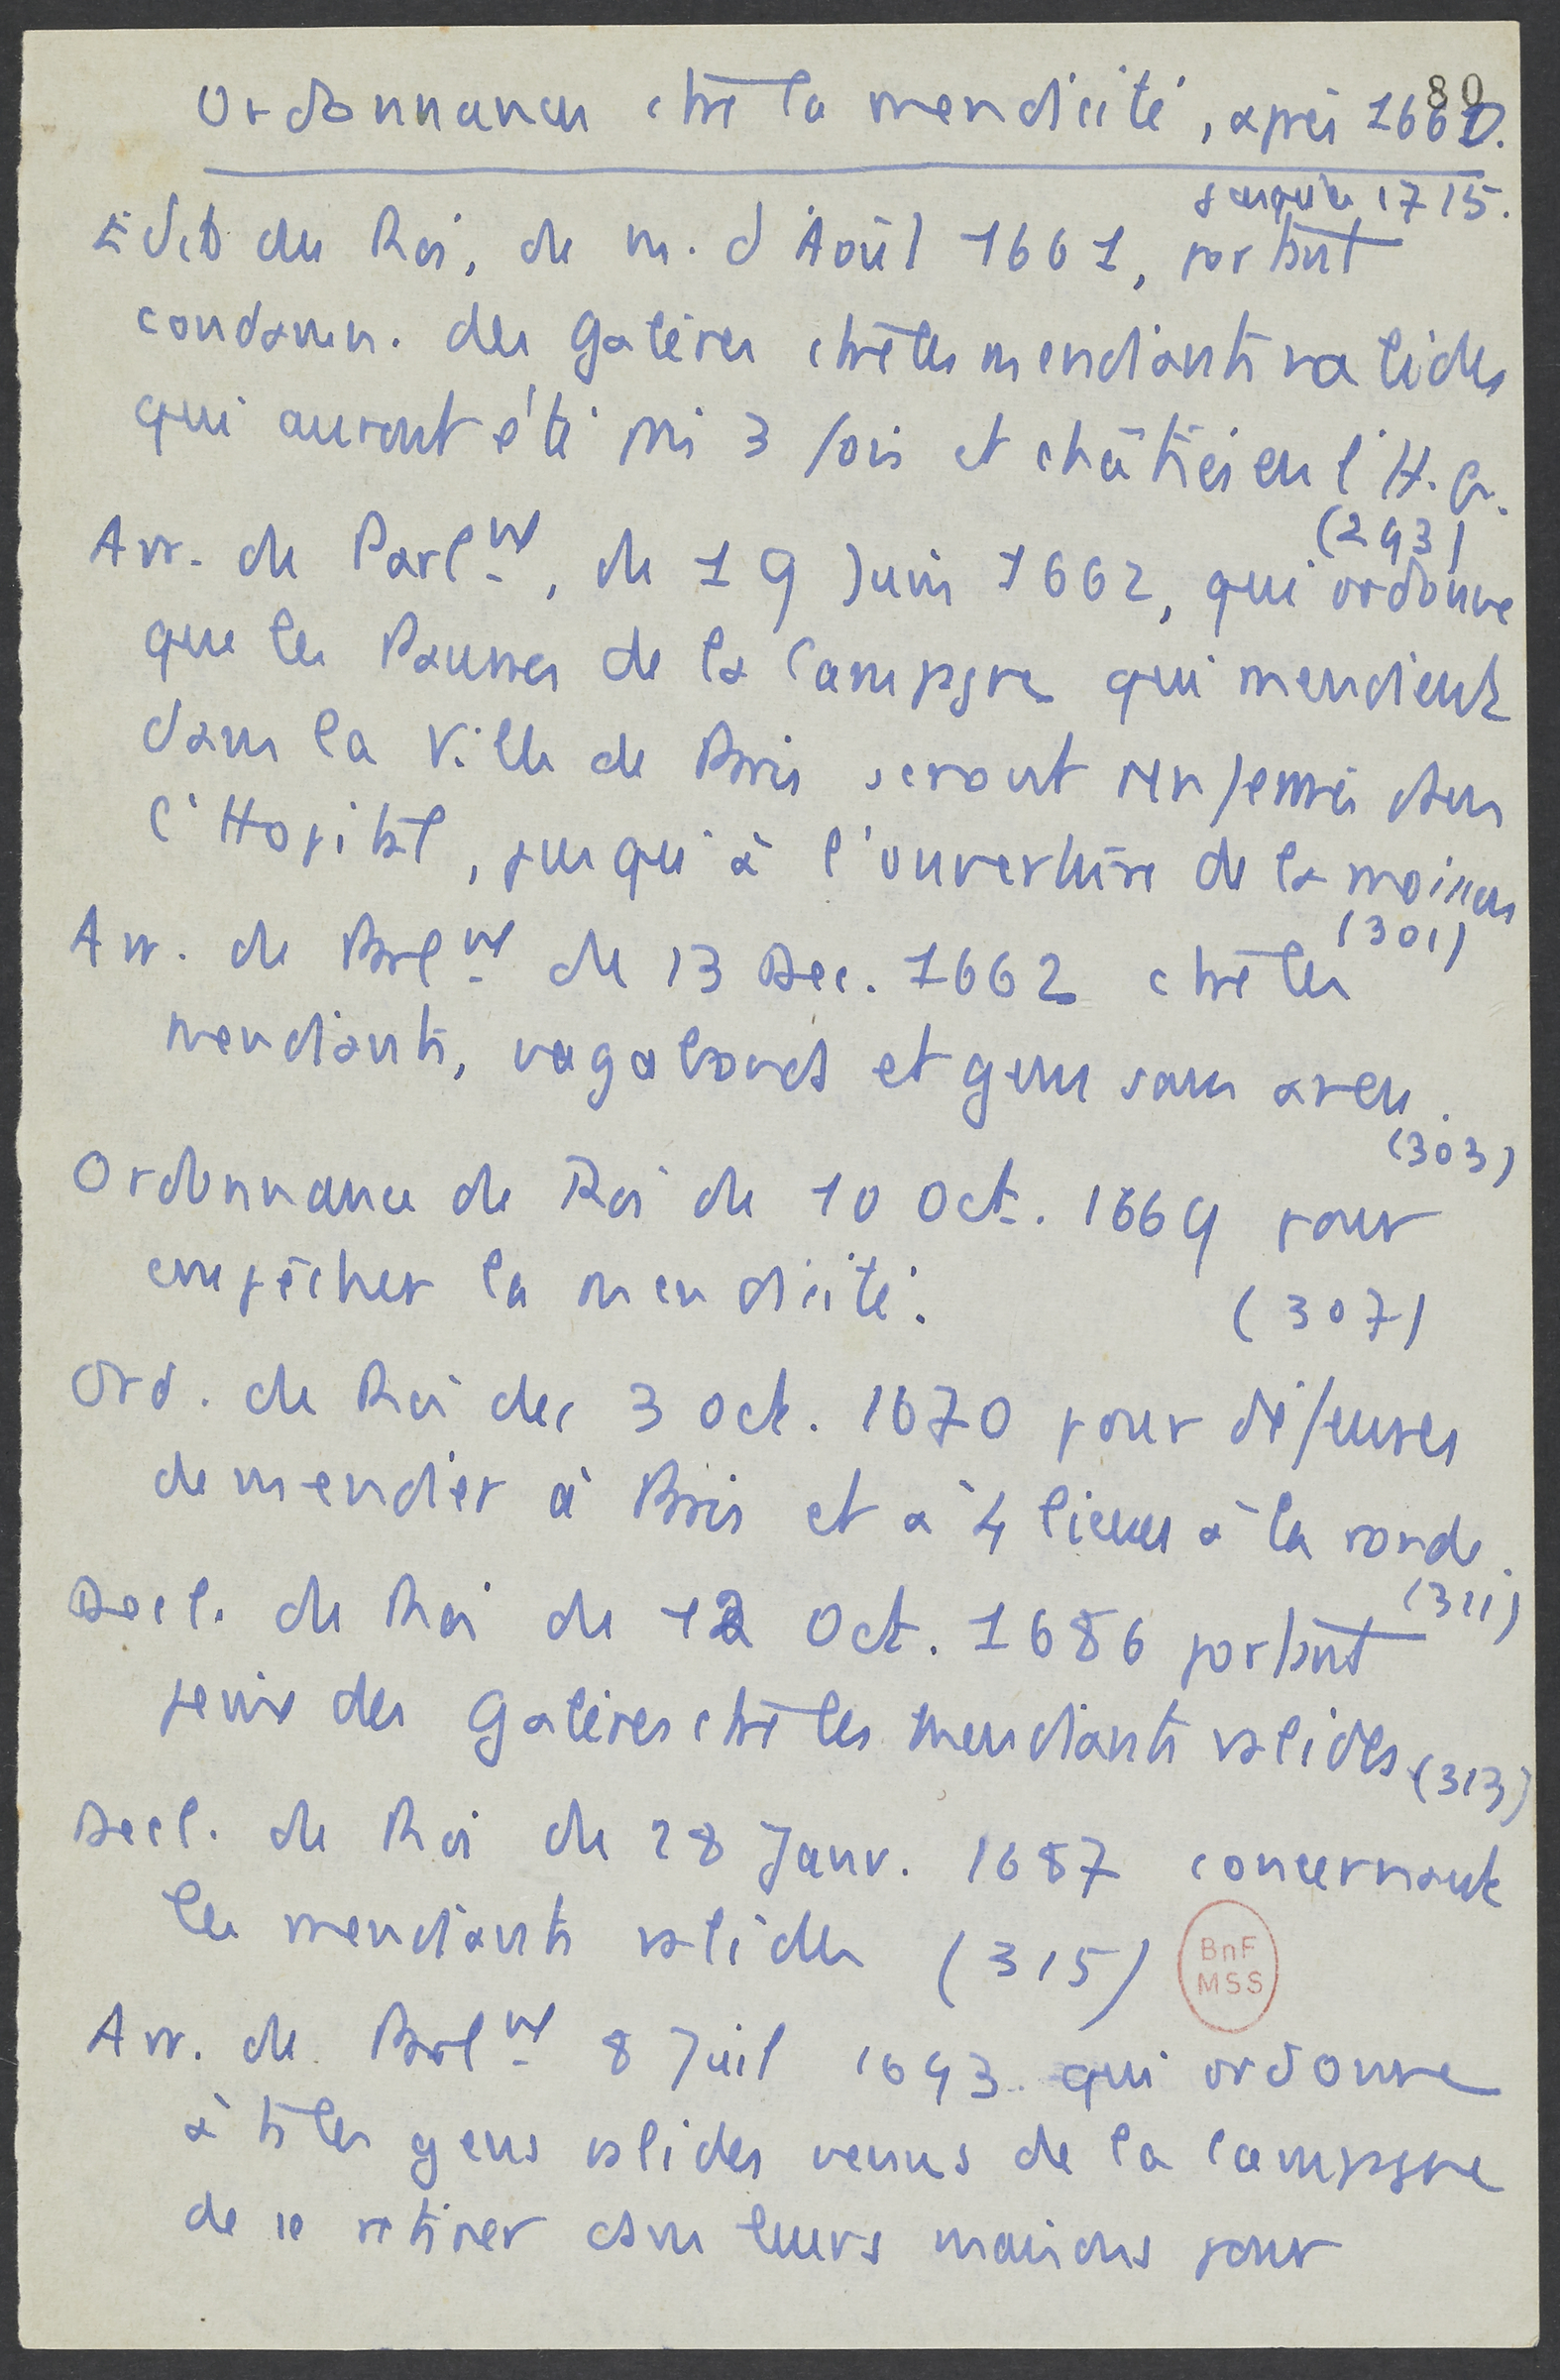 80
Ordonnances ctre la mendicité, après 1660.
jusqu'en 1715.
Edit du Roi, du m. d'Août 1661, portant
condamn. des galères ctre les mendiants valides
qui auront été pris 3 fois et châtiés en l'H. G.
(293)
Arr. du Parlnt, du 19 Juin 1662, qui ordonne
que les Pauvres de la Campagne qui mendient
dans la Ville de Paris seront renfermés dans
l'Hopital, jusqu'à l'ouverture de la moisson
(301)
Arr. du Parlnt du 13 Dec. 1662 ctre les
mendiants, vagabonds et gens sans aveu.
(303)
Ordonnance du Roi du 10 Oct. 1669 pour
empêcher la mendicité.
(307)
Ord. du Roi du 3 Oct. 1670 pour défenses
de mendier à Paris et à 4 lieues à la ronde.
(311)
Decl. du Roi du 12 Oct. 1686 portant
peine des Galères ctre les mendiants valides (313)
Decl. du Roi du 28 Janv. 1687 concernant
les mendiants valides (315)
BnF
MSS
Arr. du Parlnt 8 Juil 1693 qui ordonne
à ts les gens valides venus de la campagne
de se retirer dans leurs maisons pour